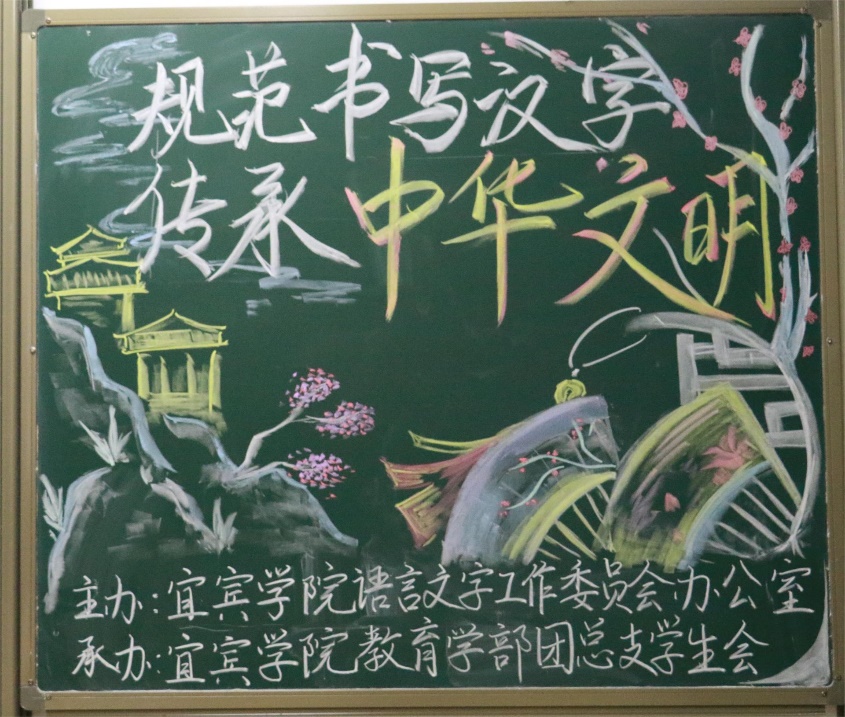 规范书写汉字
传承中华文明
主办:宜宾学院语言文字工作委员会办公室
承办:宜宾学院教育学部团总支学生会